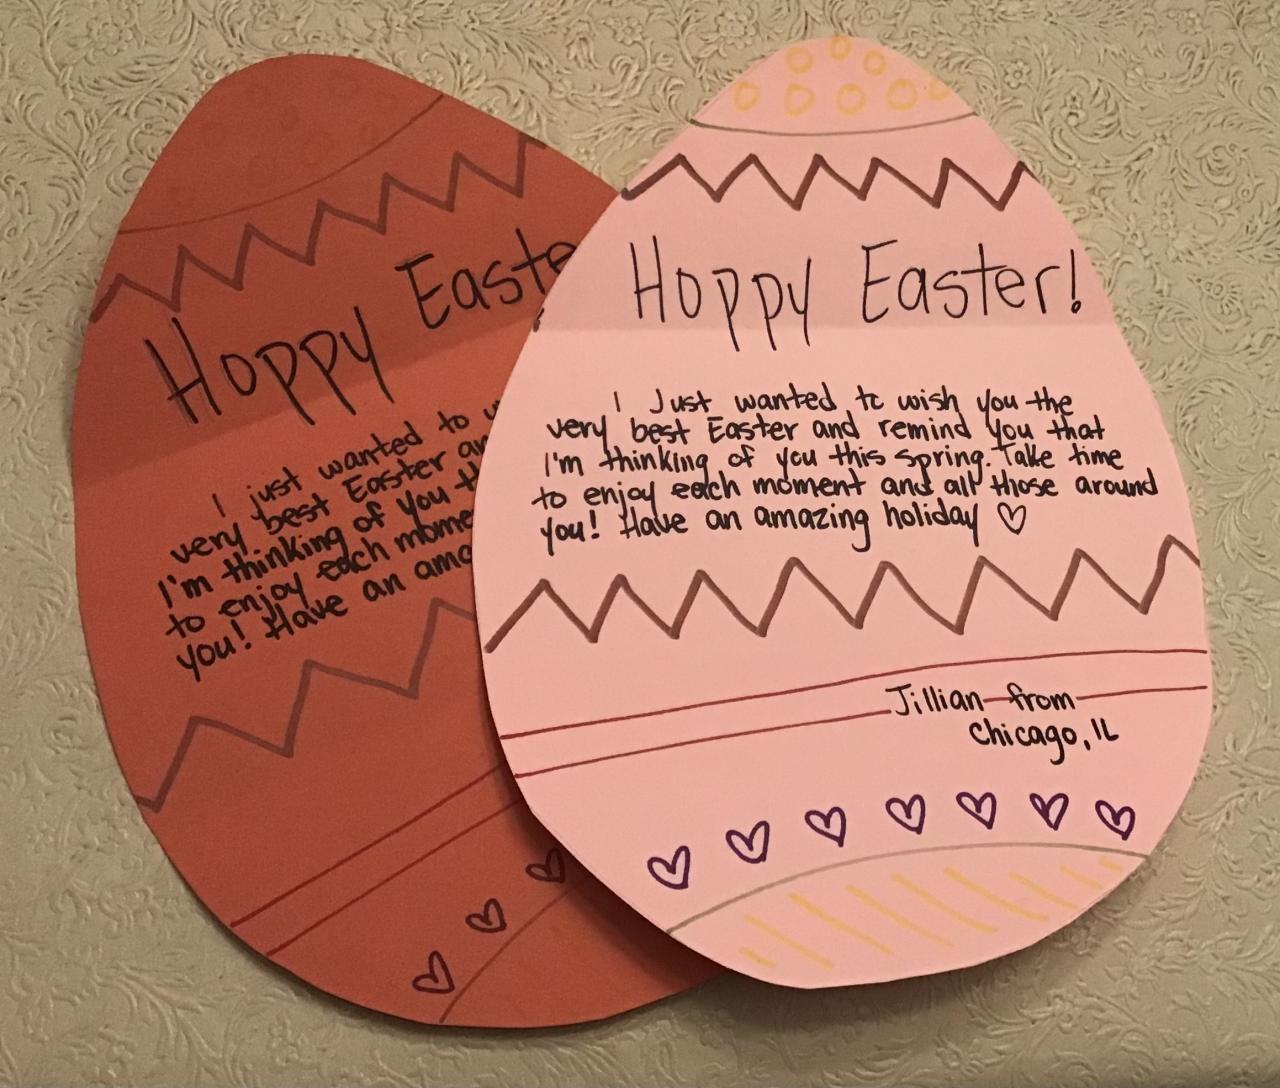 Hoppy Easte
I just wanted to
very best Easter an
I'm thinking of you th
to enjoy each mome
you! Have an ama
Hoppy Easter!
I Just wanted to wish you the
very best Easter and remind you that
I'm thinking of you this spring. Take time
to enjoy each moment and all those around
you! Have an amazing holiday ♡
Jillian from
Chicago, IL